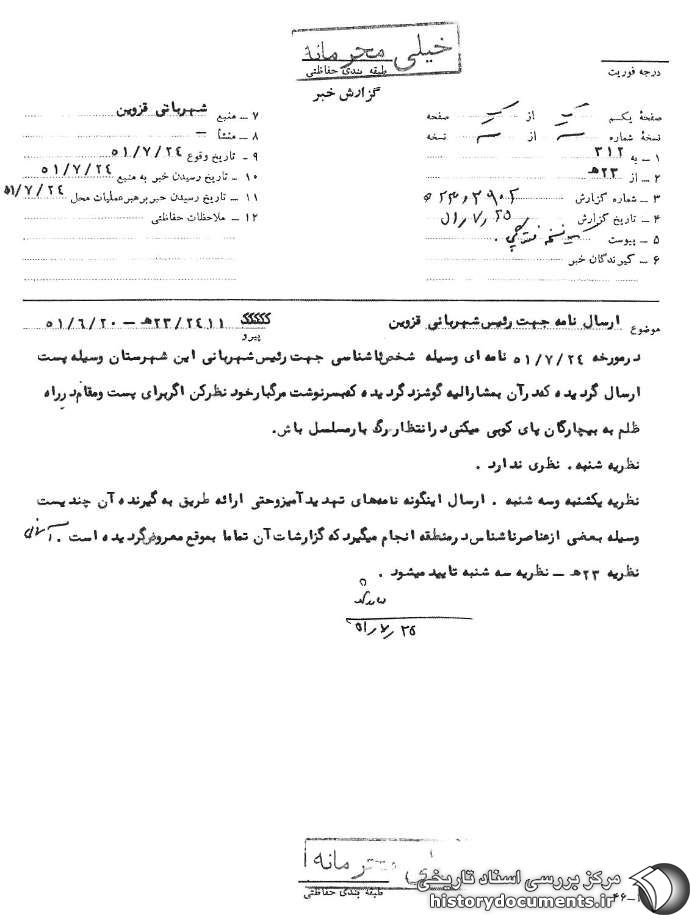 خیلی محرمانه
طبقه بندی حفاظتی
گزارش خبر
درجه فوریت
صفحهٔ یکم از صفحه
نسخهٔ شماره از نسخه
۱ ــ به ۳۱۲
۲ ــ از ۲۳هـ
۳ ــ شماره گزارش
۴ ــ تاریخ گزارش ۵۱/۷/۲۵
۵ ــ پیوست
۶ ــ گیرندگان خبر
۷ ــ منبع شهربانی قزوین
۸ ــ منشأ ــ
۹ ــ تاریخ وقوع ۵۱/۷/۲۴
۱۰ ــ تاریخ رسیدن خبر به منبع ۵۱/۷/۲۴
۱۱ ــ تاریخ رسیدن خبر برهبر عملیات محل ۵۱/۷/۲۴
۱۲ ــ ملاحظات حفاظتی
موضوع ارسال نامه جهت رئیس شهربانی قزوین
پیرو ۲۳/۲۴۱۱هـ ــ ۵۱/۶/۲۰
در مورخه ۵۱/۷/۲۴ نامه ای وسیله شخص ناشناسی جهت رئیس شهربانی این شهرستان وسیله پست
ارسال گردیده که در آن بمشارالیه گوشزد گردیده که بسرنوشت مرگبار خود نظر کن اگر برای پست و مقام در راه
ظلم به بیچارگان پای کوبی میکنی در انتظار رگ بار مسلسل باش.
نظریه شنبه . نظری ندارد .
نظریه یکشنبه و سه شنبه . ارسال اینگونه نامه‌های تهدید آمیز و حتی ارائه طریق به گیرنده آن چندیست
وسیله بعضی از عناصر ناشناس در منطقه انجام میگیرد که گزارشات آن تماما بموقع معروض گردیده است .
نظریه ۲۳هـ ــ نظریه سه شنبه تایید میشود .
۵۱/۷/۲۵
محرمانه
طبقه بندی حفاظتی
مرکز بررسی اسناد تاریخی
historydocuments.ir